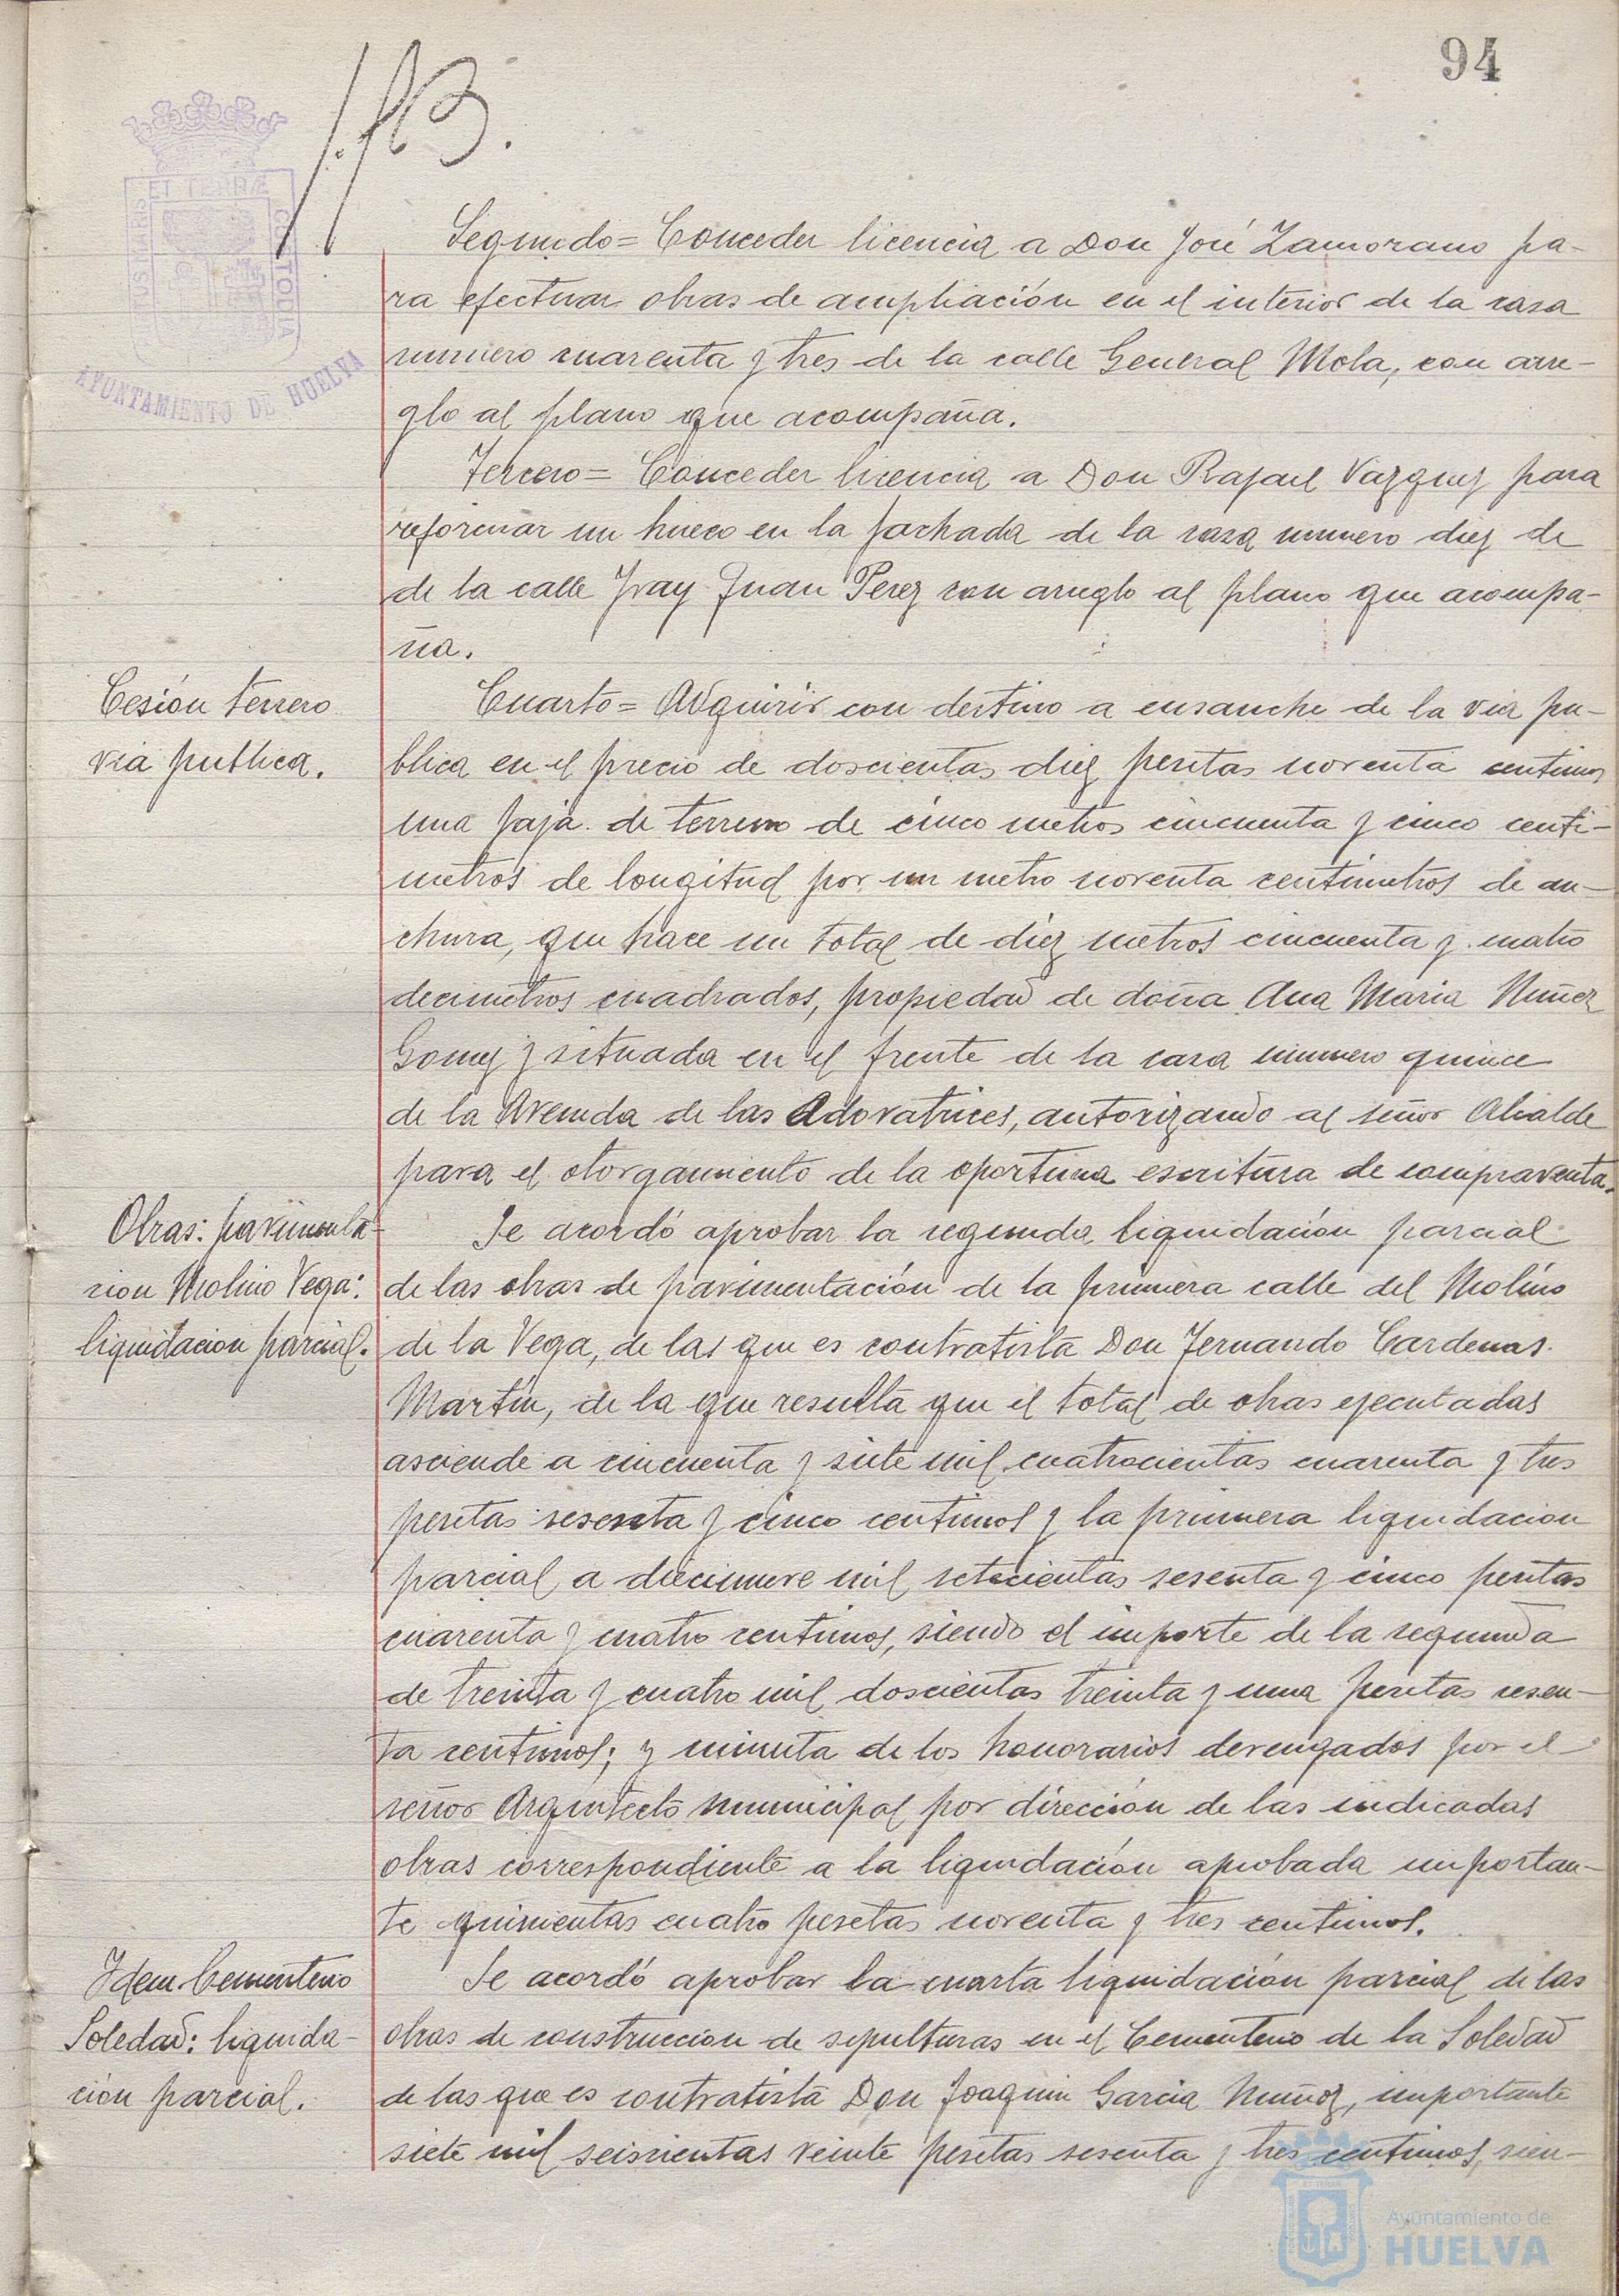 94
Segundo= Conceder licencia a Don José Zamorano pa-
ra efectuar obras de ampliación en el interior de la casa
numero cuarenta y tres de la calle General Mola, con arre-
glo al plano que acompaña.
Tercero= Conceder licencia a Don Rafael Vazquez para
reformar un hueco en la fachada de la casa numero diez de
de la calle Fray Juan Perez con arreglo al plano que acompa-
ña.
Cesión terreno
via publica.
Cuarto= Adquirir con destino a ensanche de la via pu-
blica en el precio de doscientas diez pesetas noventa centimos
una faja de terreno de cinco metros cincuenta y cinco centi-
metros de longitud por un metro noventa centimetros de an-
chura, que hace un total de diez metros cincuenta y cuatro
decimetros cuadrados, propiedad de doña Ana Maria Nuñez
Gomez y situada en el frente de la casa numero quince
de la Avenida de las Adoratrices, autorizando al señor Alcalde
para el otorgamiento de la oportuna escritura de compraventa.
Obras: pavimenta-
cion Molino Vega:
liquidacion parcial.
Se acordó aprobar la segunda liquidación parcial
de las obras de pavimentación de la primera calle del Molino
de la Vega, de las que es contratista Don Fernando Cardenas
Martín, de la que resulta que el total de obras ejecutadas
asciende a cincuenta y siete mil cuatrocientas cuarenta y tres
pesetas sesenta y cinco centimos y la primera liquidacion
parcial a diecinueve mil setecientas sesenta y cinco pesetas
cuarenta y cuatro centimos, siendo el importe de la segunda
de treinta y cuatro mil doscientas treinta y una pesetas sesen-
ta centimos; y minuta de los honorarios devengados por el
señor Arquitecto municipal por dirección de las indicadas
obras correspondiente a la liquidación aprobada importan-
te quinientas cuatro pesetas noventa y tres centimos.
Idem Cementerio
Soledad: liquida-
ción parcial.
Se acordó aprobar la cuarta liquidación parcial de las
obras de construccion de sepulturas en el Cementerio de la Soledad
de las que es contratista Don Joaquin Garcia Muñoz, importante
siete mil seiscientas veinte pesetas sesenta y tres centimos, sien-
AYUNTAMIENTO DE HUELVA
Ayuntamiento de
HUELVA